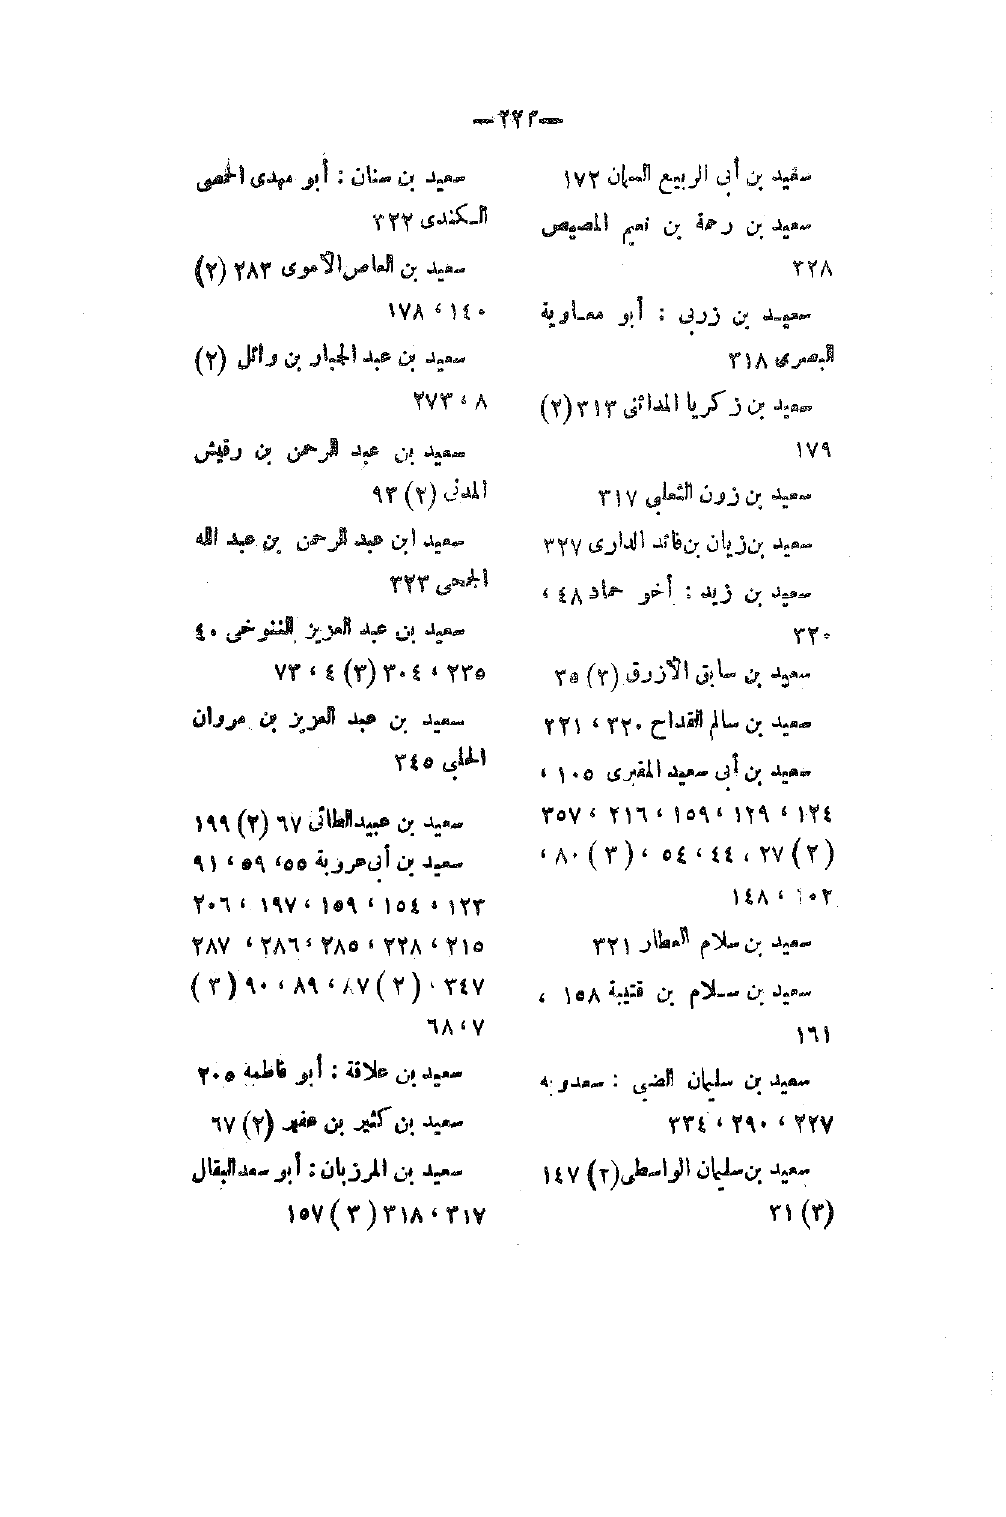 —٢٢٢—
سعيد بن أبى الربيع السمان ١٧٢
سعيد بن رحمة بن نعيم المصيصى
٣٢٨
سعيد بن زربى : أبو معاوية
البصرى ٣١٨
سعيد بن زكريا المدائنى ٣١٣ (٢)
١٧٩
سعيد بن زون الثعلبى ٣١٧
سعيد بن زياد بن فائد الدارى ٣٢٧
سعيد بن زيد : أخو حماد ٤٨ ،
٣٢٠
سعيد بن سابق الأزرق (٣) ٣٥
سعيد بن سالم القداح ٣٢٠ ، ٢٢١
سعيد بن أبى سعيد المقبرى ١٠٥ ،
١٢٤ ، ١٢٩ ، ١٥٩ ، ٢١٦ ، ٣٥٧
(٢) ٢٧ ، ٤٤ ، ٥٤ ، (٣) ٨٠ ،
١٠٢ ، ١٤٨
سعيد بن سلام العطار ٣٢١
سعيد بن سلام بن قتيبة ١٥٨ ،
١٦١
سعيد بن سليمان الضبى : سعدويه
٢٢٧ ، ٢٩٠ ، ٣٣٤
سعيد بن سليمان الواسطى (٢) ١٤٧
(٣) ٣١
سعيد بن سنان : أبو مهدى الحمصى
الكندى ٣٢٢
سعيد بن العاص الأموى ٢٨٣ (٢)
١٤٠ ، ١٧٨
سعيد بن عبد الجبار بن وائل (٢)
٨ ، ٢٧٣
سعيد بن عبد الرحمن بن رقيش
المدنى (٢) ٩٣
سعيد ابن عبد الرحمن بن عبد الله
الجمحى ٣٢٣
سعيد بن عبد العزيز التنوخى ٤٠
٢٣٥ ، ٣٠٤ (٣) ٤ ، ٧٣
سعيد بن عبد العزيز بن مروان
الحلبى ٣٤٥
سعيد بن عبيد الطائى ٦٧ (٢) ١٩٩
سعيد بن أبى عروبة ٥٥ ، ٥٩ ، ٩١
١٢٣ ، ١٥٤ ، ١٥٩ ، ١٩٧ ، ٢٠٦
٢١٥ ، ٢٢٨ ، ٢٨٥ ، ٢٨٦ ، ٢٨٧
٣٤٧ ، (٢) ٨٧ ، ٨٩ ، ٩٠ (٣)
٧ ، ٦٨
سعيد بن علاقة : أبو فاطمة ٢٠٥
سعيد بن كثير بن عفير (٢) ٦٧
سعيد بن المرزبان : أبو سعد البقال
٣١٧ ، ٣١٨ (٣) ١٥٧